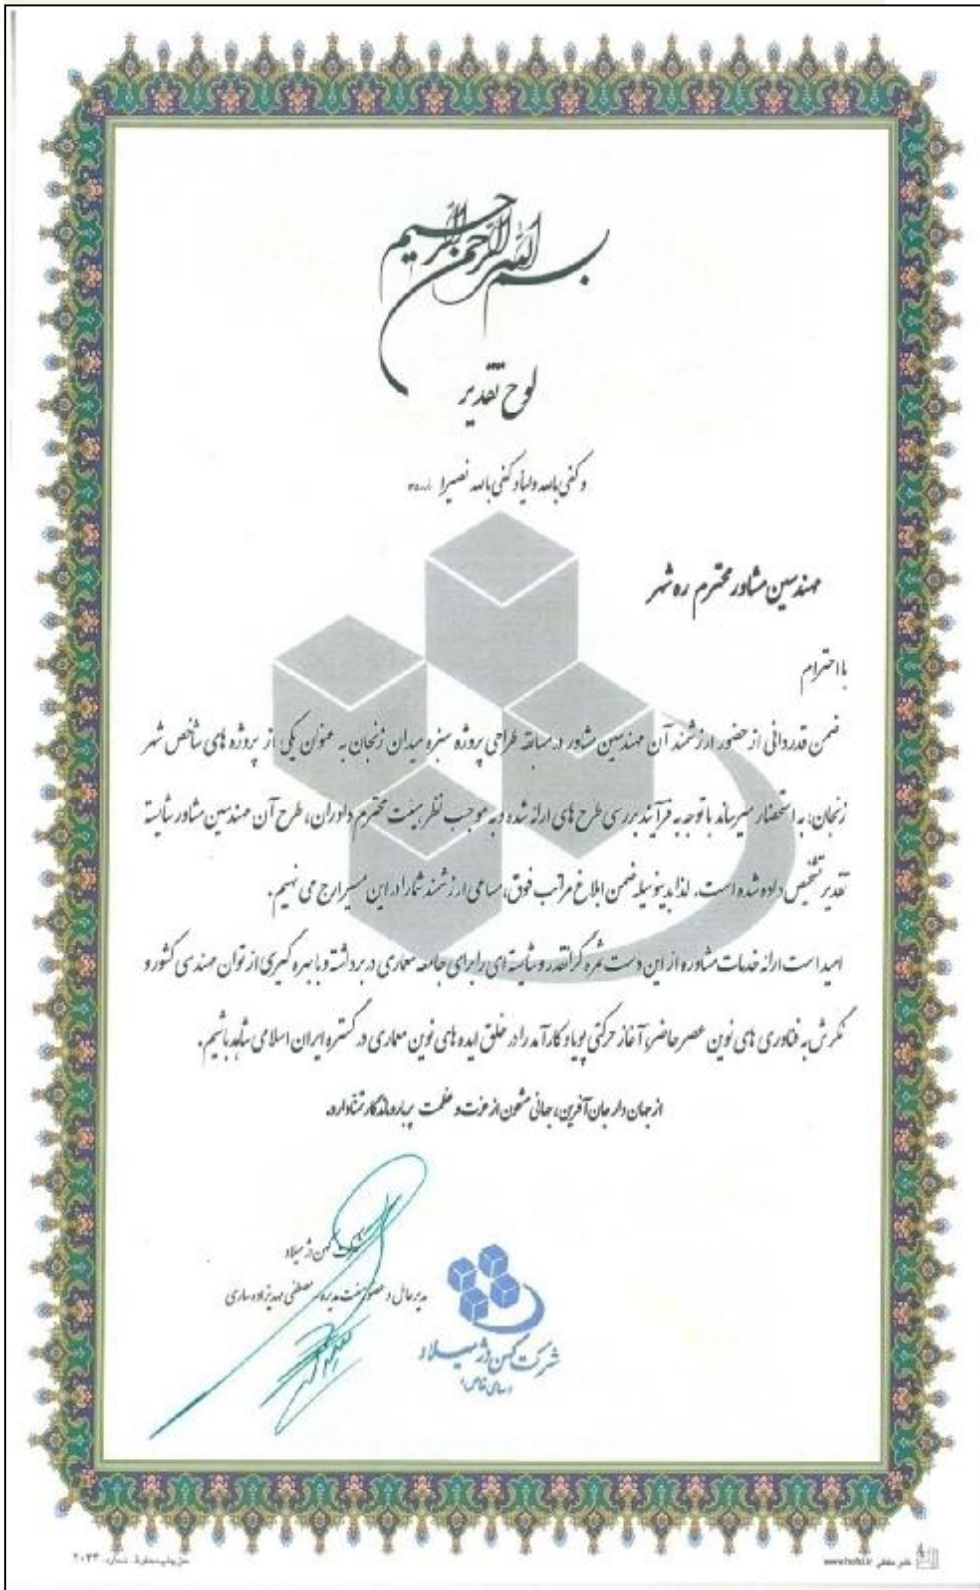 بسم الله الرحمن الرحیم
لوح تقدیر
و کفی بالله ولیاً و کفی بالله نصیرا
مهندسین مشاور محترم ره شهر
با احترام
ضمن قدردانی از حضور ارزشمند آن مهندسین مشاور در مسابقه طراحی پروژه سبزه میدان زنجان به عنوان یکی از پروژه های شاخص شهر
زنجان، به استحضار میرساند با توجه به فرآیند بررسی طرح های ارائه شده و به موجب نظر هیئت محترم داوران، طرح آن مهندسین مشاور شایسته
تقدیر تشخیص داده شده است. لذا بدینوسیله ضمن ابلاغ مراتب فوق، مساعی ارزشمند شما را در این مسیر ارج می نهیم.
امید است ارائه خدمات مشاوره از این دست ثمره گرانقدر و شایسته ای را برای جامعه معماری در برداشته و با بهره گیری از توان مهندسی کشور و
نگرش به فناوری های نوین عصر حاضر، آغاز حرکتی پویا و کارآمد را در خلق ایده های نوین معماری در گستره ایران اسلامی شاهد باشیم.
از جهان دار جان آفرین، جهانی مشحون از عزت و عظمت پربار و ماندگار تمنا دارد.
شرکت کهن دژ میلاد
مدیر عامل و عضو هیئت مدیره مصطفی مهدیزاده ساری
شرکت کهن دژ میلاد
(سهامی خاص)
حق چاپ محفوظ. شماره: ۲۰۲۴